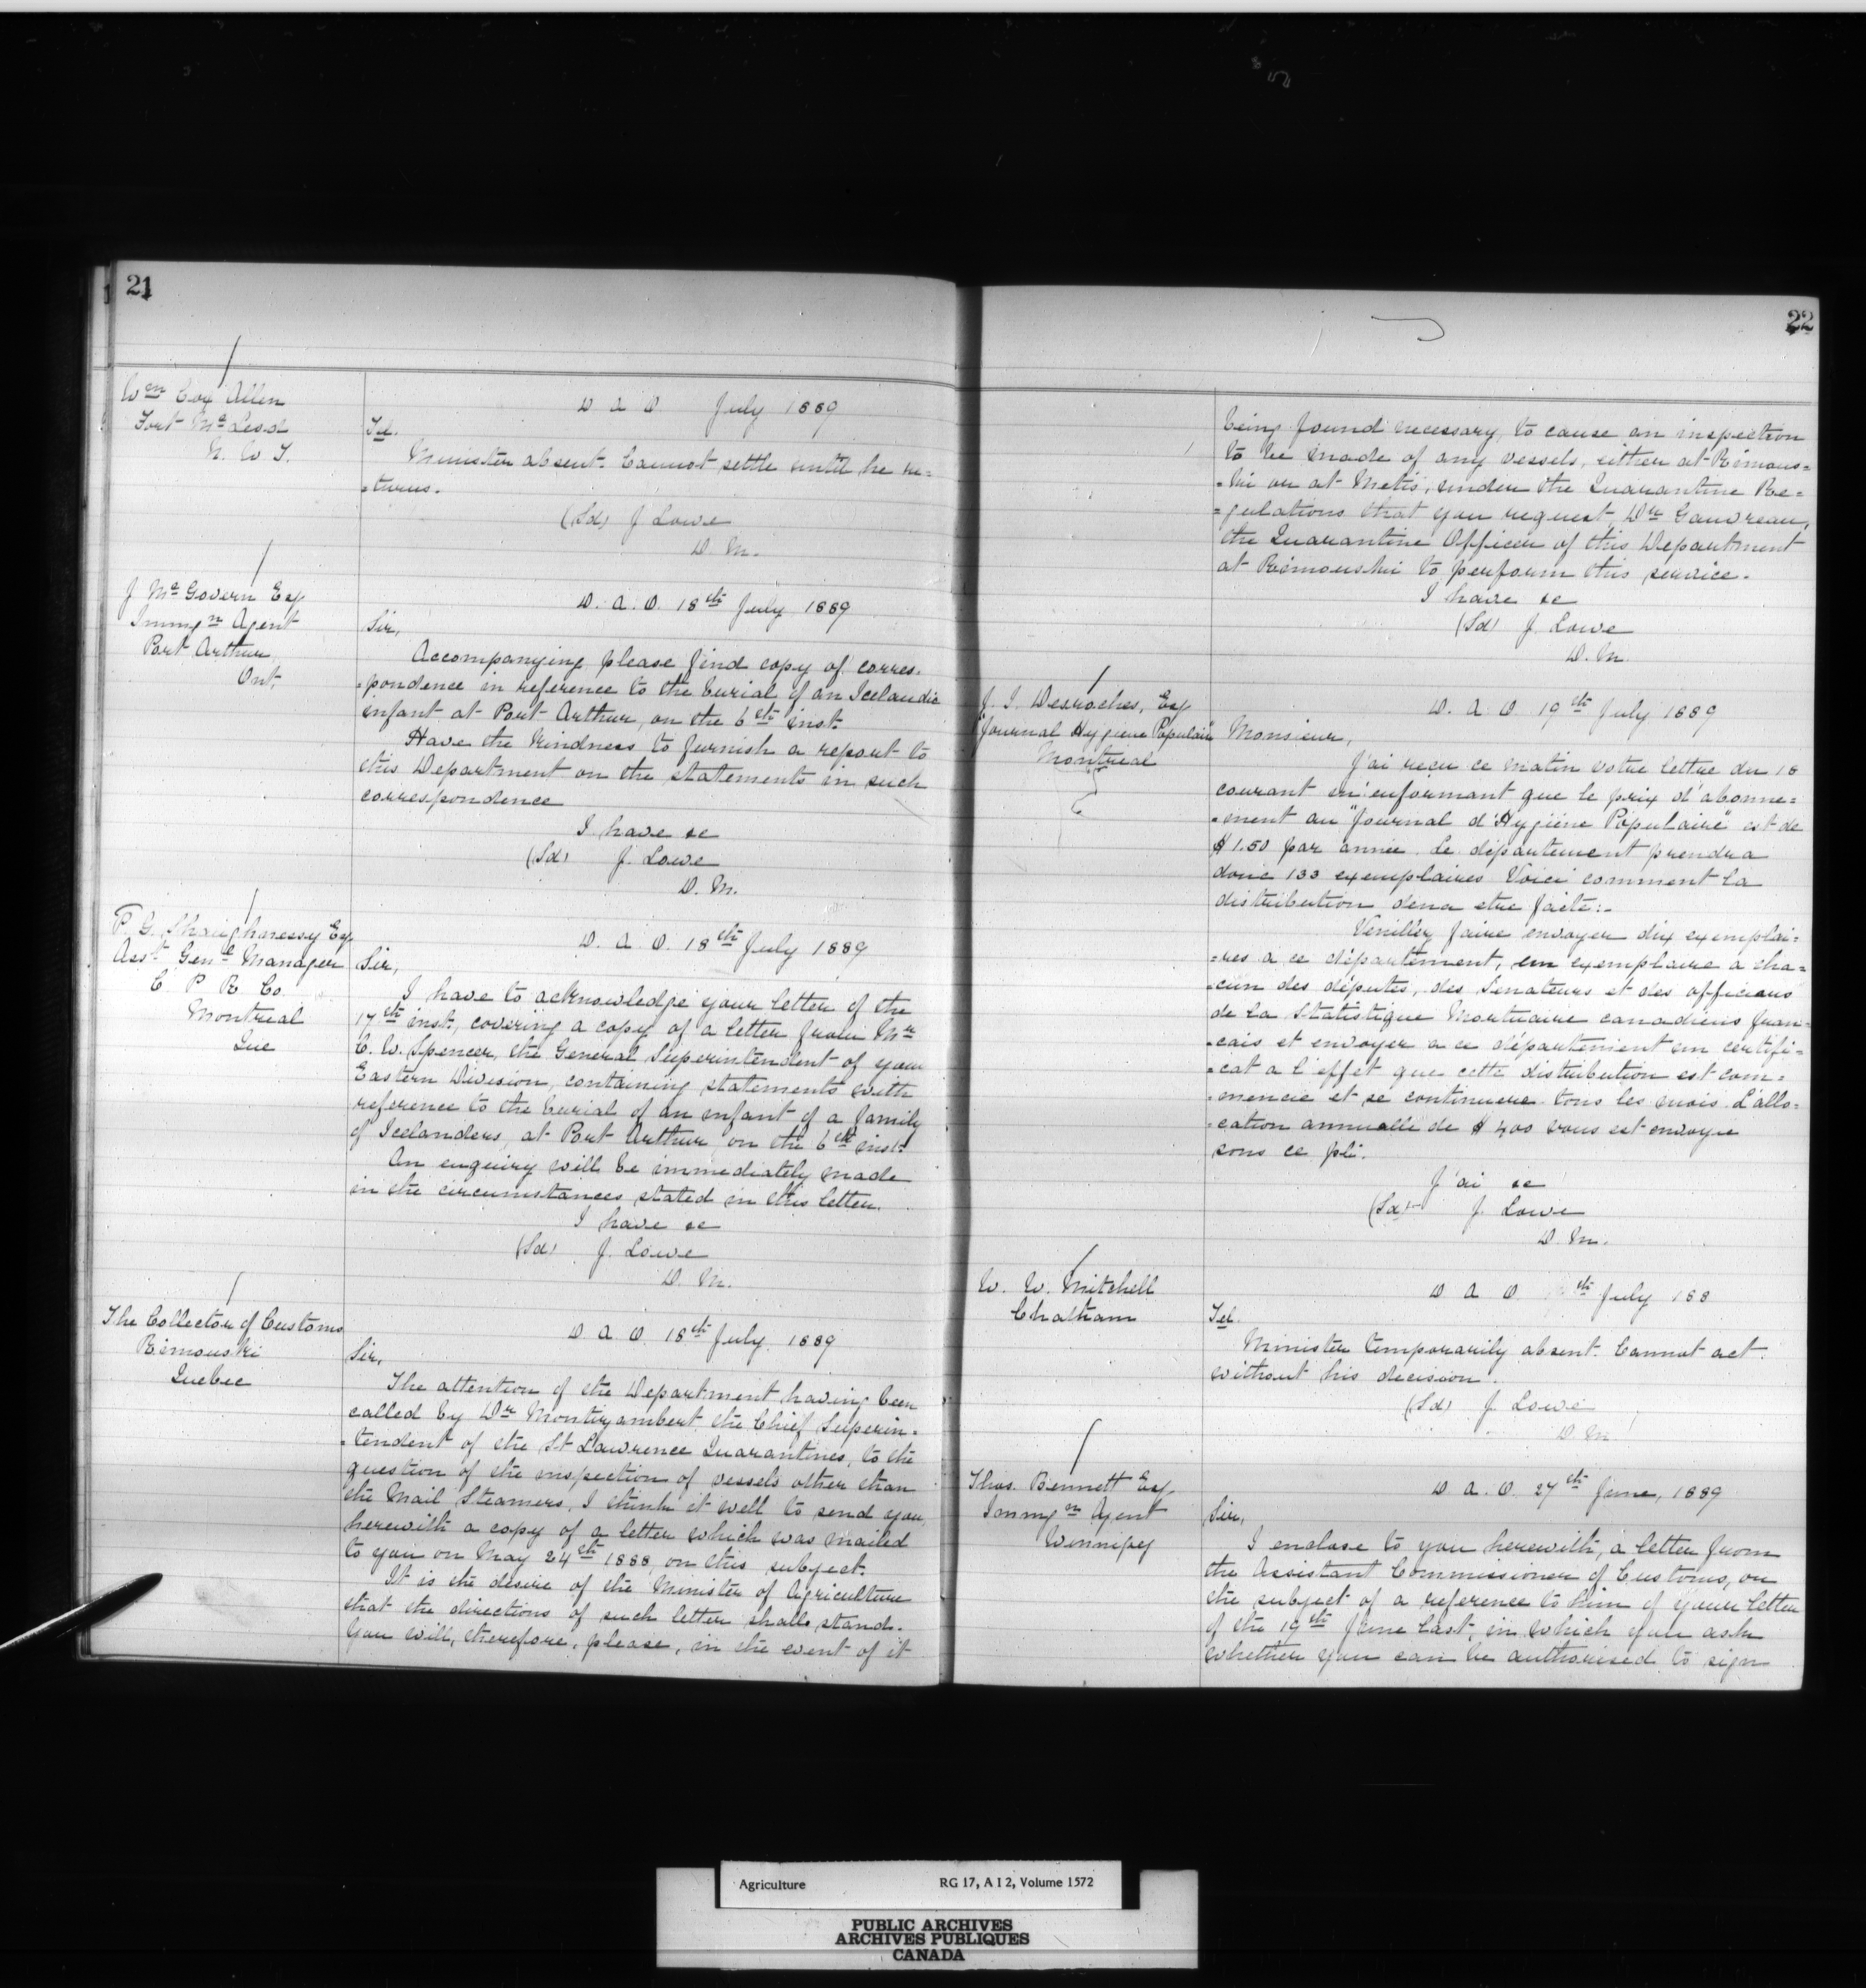 21
Wm Cox Allen
Fort McLeod
N. W T.
D A O July 1889
Tel.
Minister absent. Cannot settle until he re=
=turns.
(Sd) J Lowe
D. M.
J McGovern Esq
Immgn Agent
Port Arthur
Ont,
D. A. O. 18th July 1889
Sir,
Accompanying please find copy of corres.
=pondence in reference to the burial of an Icelandic
infant at Port Arthur, on the 6th inst.
Have the kindness to furnish a report to
this Department on the statements in such
correspondence
I have &c
(Sd) J. Lowe
D. M.
P. G. Shaughnessy Esq
Asst Genl Manager
C P R Co.
Montreal
Que
D. A. O. 18th July 1889
Sir,
I have to acknowledge your letter of the
17th inst, covering a copy of a letter from Mr
C. W. Spencer, the General Superintendent of your
Eastern Division, containing statements with
reference to the burial of an infant of a family
of Icelanders, at Port Arthur on the 6th inst.
An enquiry will be immediately made
in the circumstances stated in this letter.
I have &c
(Sd) J. Lowe
D. M.
The Collector of Customs
Rimouski
Quebec
D A O 18th July. 1889
Sir,
The attention of the Department having been
called by Dr Montizambert the Chief Superin=
=tendent of the St Lawrence Quarantines, to the
question of the inspection of vessels other than
the Mail Steamers, I think it well to send you
herewith a copy of a letter which was mailed
to you on May 24th 1888, on this subject.
It is the desire of the Minister of Agriculture
that the directions of such letter shall stand.
You will, therefore, please, in the event of it
22
being found necessary, to cause an inspection
to be made of any vessels, either at Rimous=
=ki or at Metis, under the Quarantine Re=
=gulations that you request Dr Gauvreau,
the Quarantine Officer of this Department
at Rimouski to perform this service.
I have &c
(Sd) J. Lowe
D. M.
J. I. Desroches, Esq
"Journal Hygiene Populaire"
Montreal
D. A. O 19th July 1889
Monsieur,
J'ai reçu ce matin votre lettre du 18
courant m'enformant que le prix d'abonne=
=ment au "Journal d'Hygiéne Populaire" est de
$1.50 par année. Le département prendra
donc 133 exemplaires Voici comment la
distribution devra etre faite:-
Veuillez faire envoyer dix exemplai=
=res a ce département, un exemplaire a cha=
=cun des députes, des Senateurs et des officiers
de la Statistique Mortuaire canadiens fran=
=cais et envoyer a ce département un certifi=
=cat a l'effet que cette distribution est com=
=mencie et se continuera tous les mois. L'allo=
=cation annuelle de $400 vous est envoyee
sous ce pli.
J'ai &c
(Sd) J. Lowe
D. M.
W. W. Mitchell
Chatham
D A O th July 188
Tel.
Minister temporarily absent. Cannot act
without his decision.
(Sd) J. Lowe
D. M.
Thos. Bennett Esq
Immgn Agent
Winnipeg
D A. O. 27th June, 1889
Sir,
I enclose to you herewith, a letter from
the Assistant Commissioner of Customs, on
the subject of a reference to him of your letter
of the 19th June last, in which you ask
whether you can be authorised to sign
Agriculture RG 17, A I 2, Volume 1572
PUBLIC ARCHIVES
ARCHIVES PUBLIQUES
CANADA